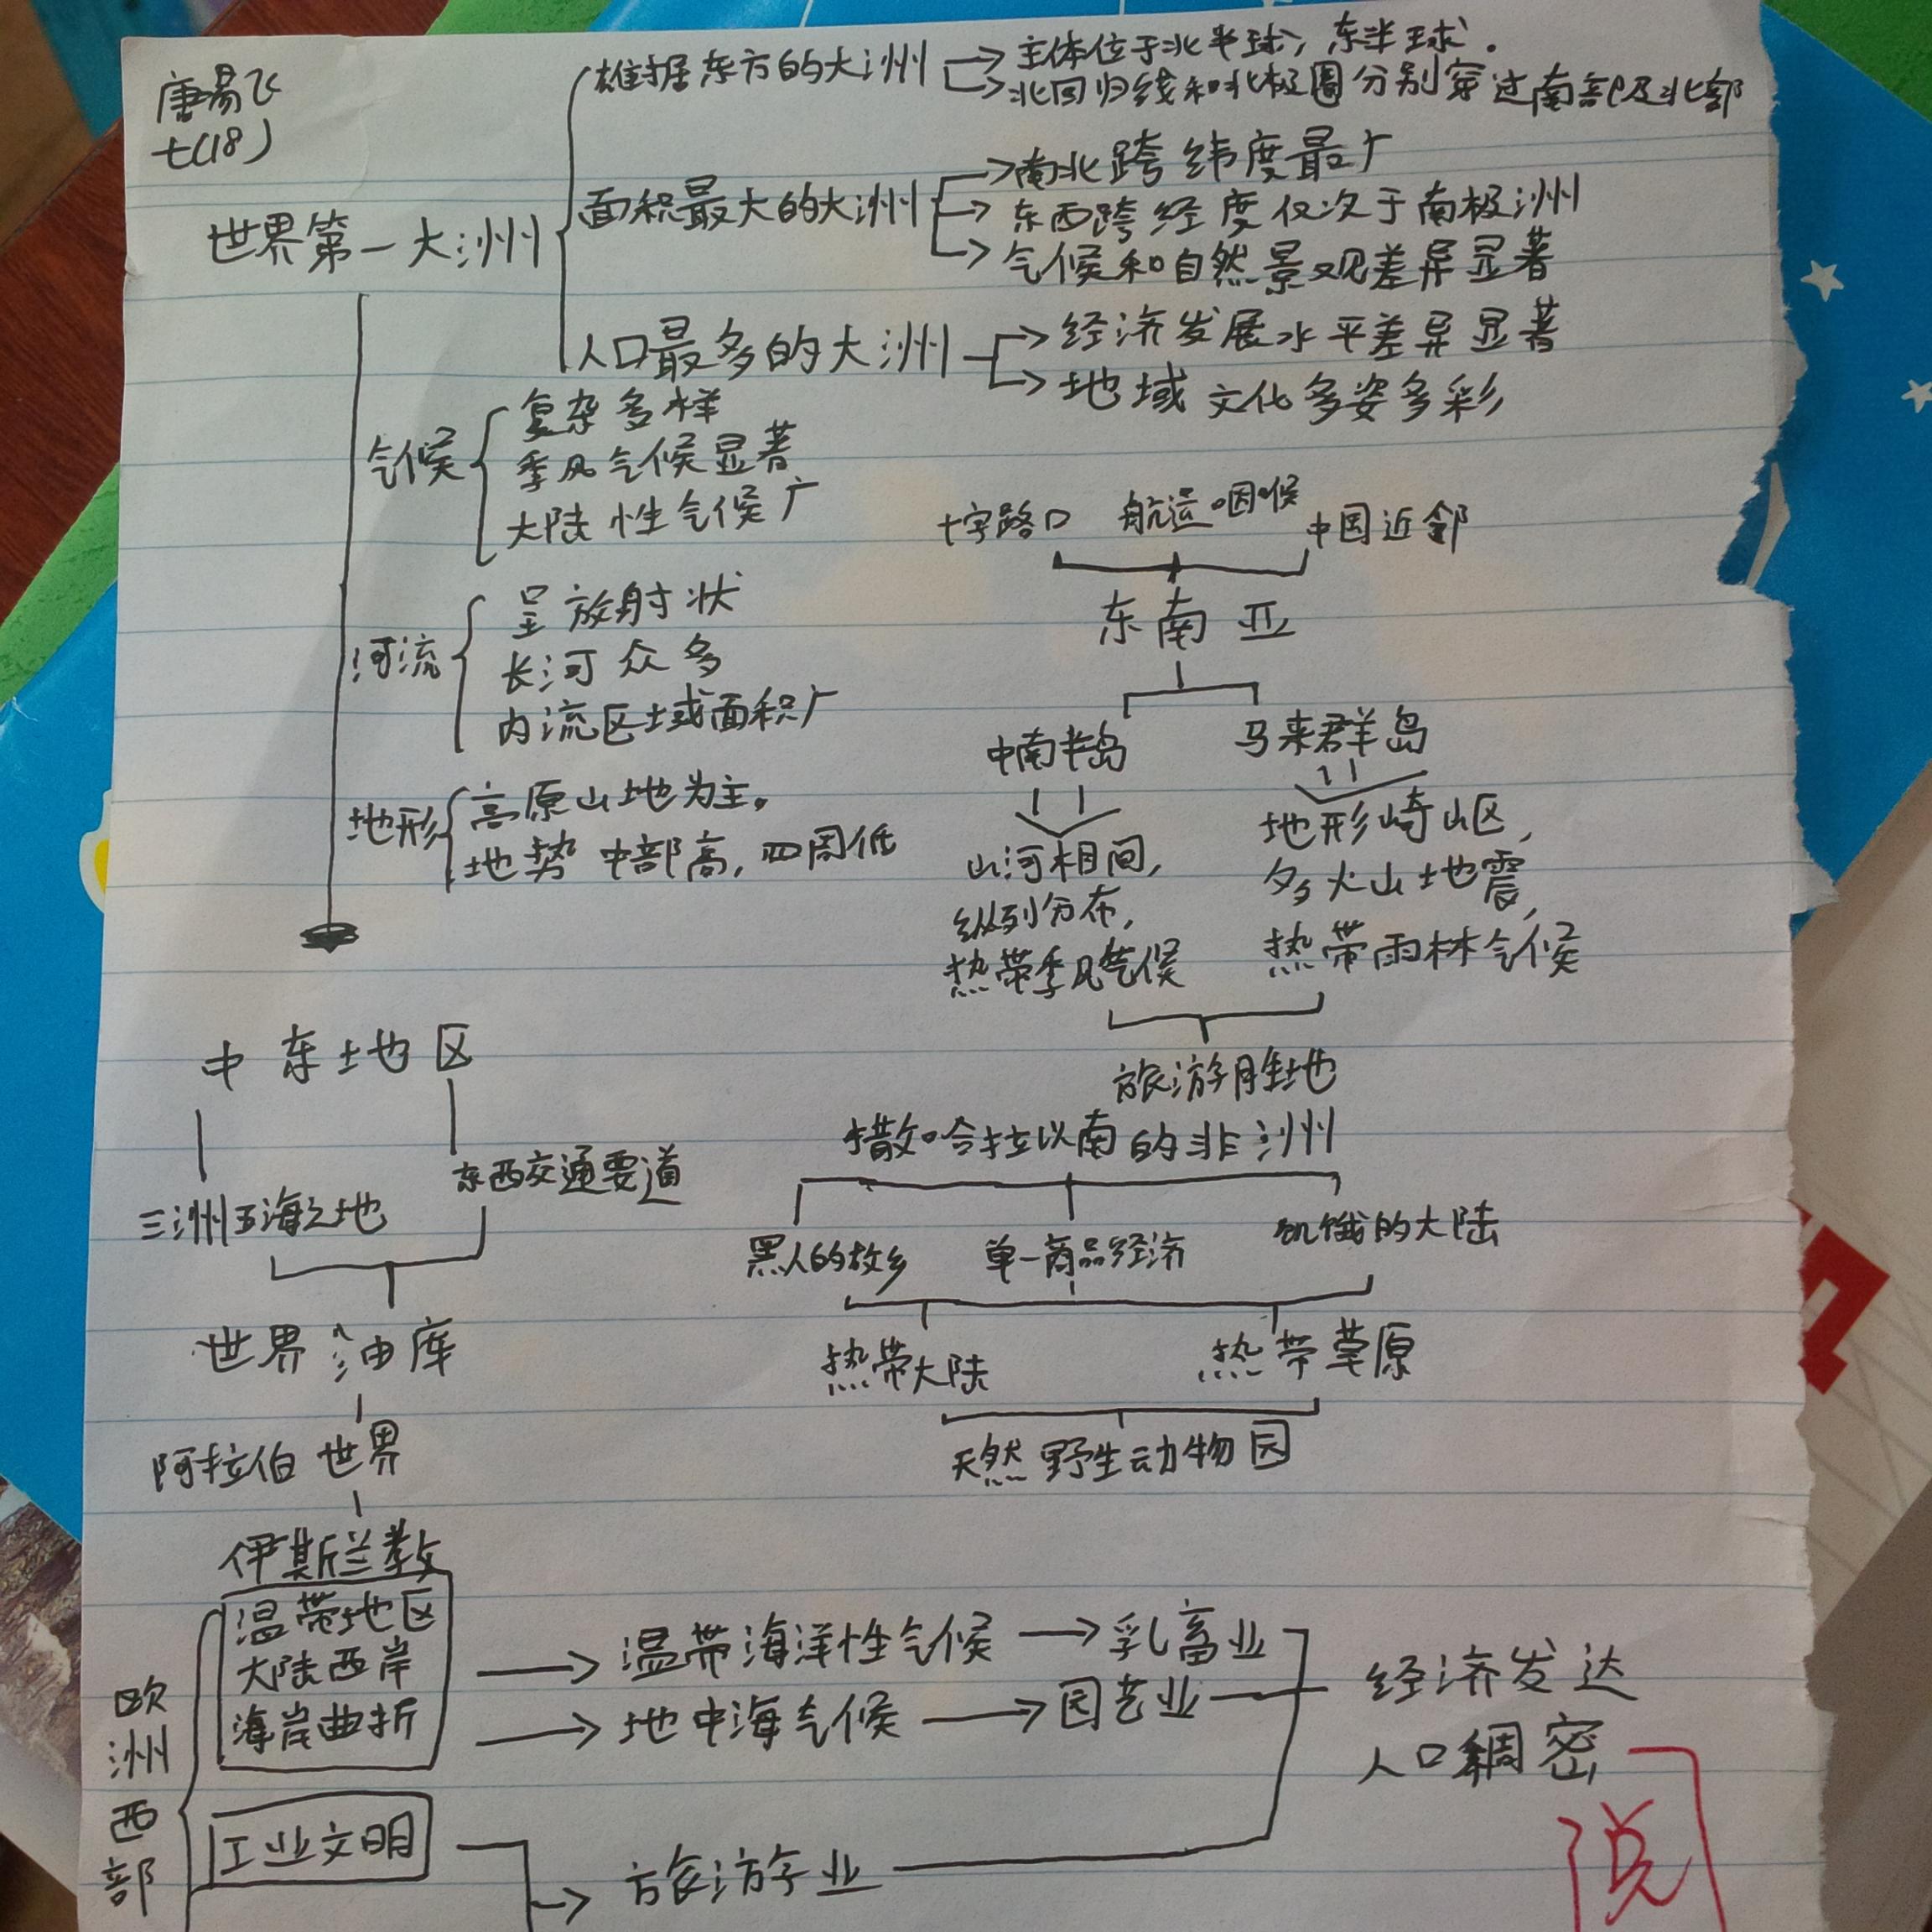 唐易飞
七(18)
世界第一大洲
雄据东方的大洲
主体位于北半球，东半球.
北回归线和北极圈分别穿过南部及北部
面积最大的大洲
南北跨纬度最广
东西跨经度仅次于南极洲
气候和自然景观差异显著
人口最多的大洲
经济发展水平差异显著
地域文化多姿多彩
气候
复杂多样
季风气候显著
大陆性气候广
河流
呈放射状
长河众多
内流区域面积广
地形
高原山地为主。
地势中部高，四周低
十字路口 航运咽喉 中国近邻
东南亚
中南半岛
山河相间，
纵列分布，
热带季风气候
马来群岛
地形崎岖，
多火山地震，
热带雨林气候
旅游胜地
中东地区
三洲五海之地
东西交通要道
世界油库
阿拉伯世界
伊斯兰教
撒哈拉以南的非洲
黑人的故乡 单一商品经济 饥饿的大陆
热带大陆 热带草原
天然野生动物园
欧洲西部
温带地区
大陆西岸
海岸曲折
温带海洋性气候 乳畜业
地中海气候 园艺业
工业文明
旅游业
经济发达
人口稠密
阅